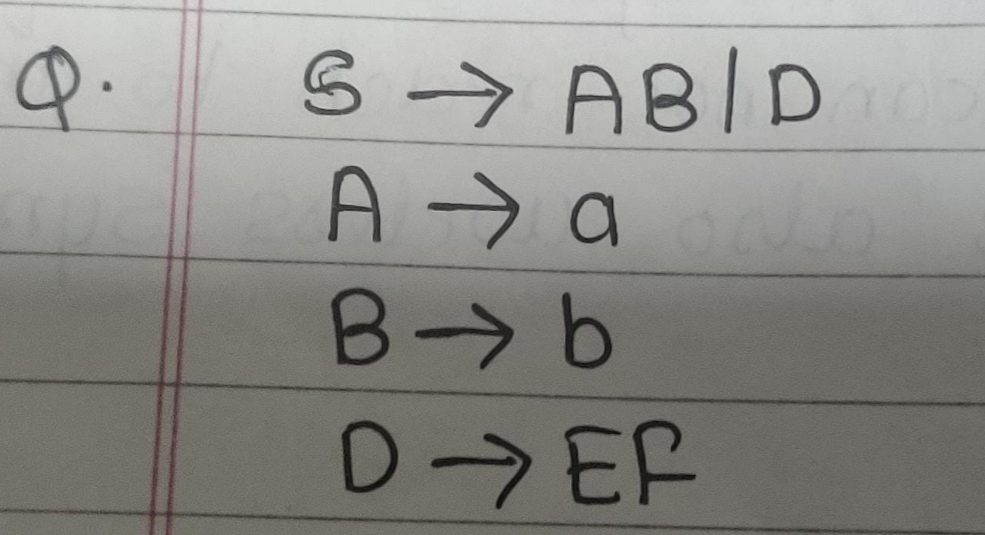 Q. S → AB|D
A → a
B → b
D → EF